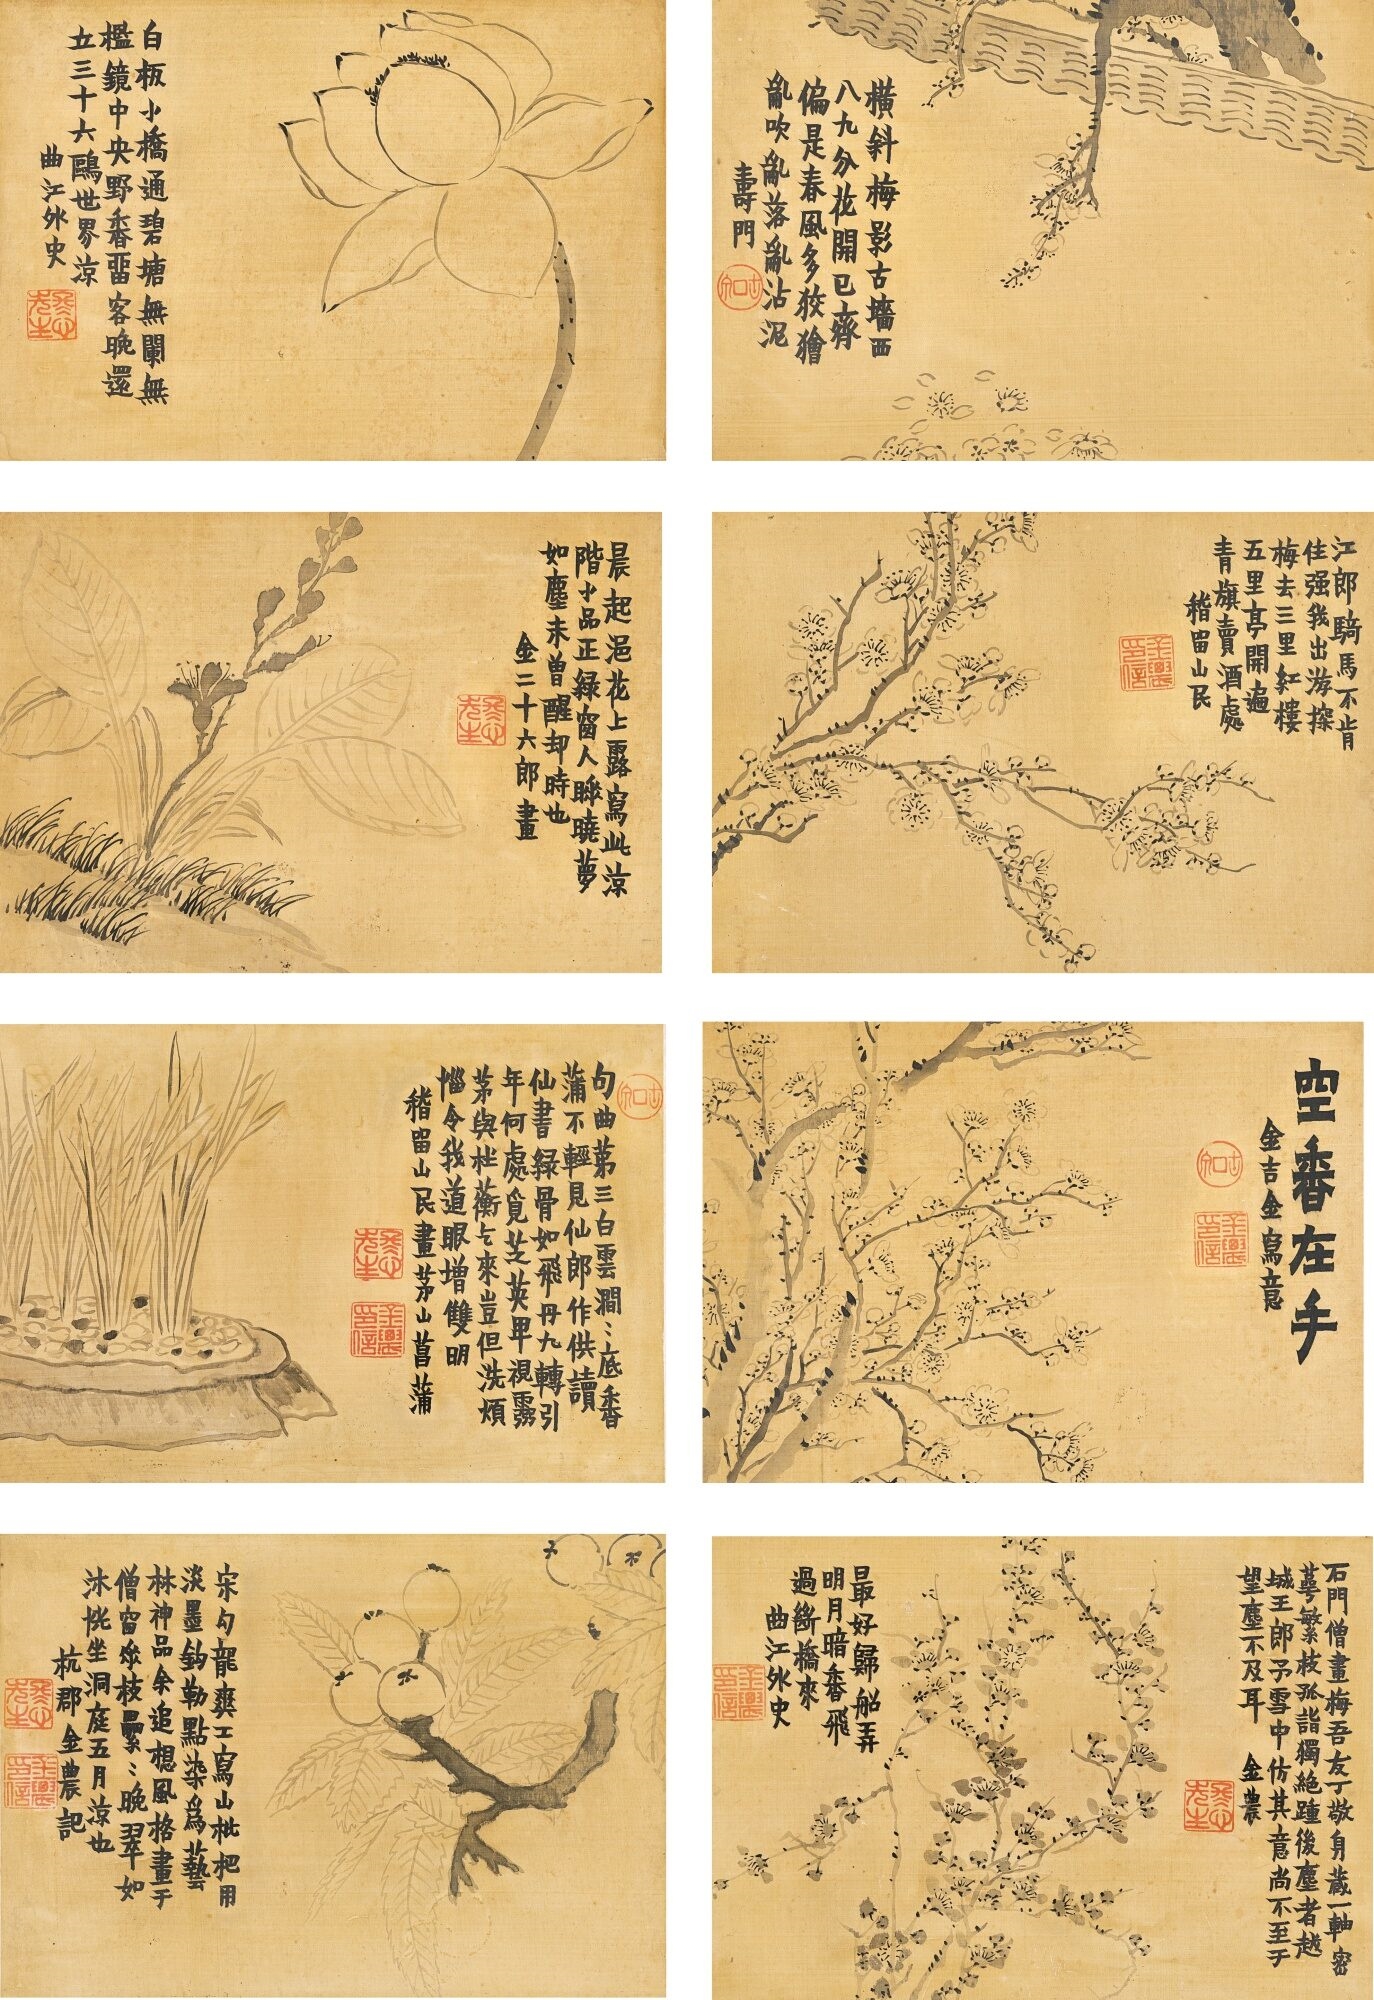 白板小橋通碧塘無闌無
檻鏡中央野香畱客晚還
立三十六鷗世界涼
曲江外史
橫斜梅影古墻西
八九分花開已齊
偏是春風多狡獪
亂吹亂落亂沾泥
壽門
晨起浥花上露寫此涼
階小品正綠窗人眸曉夢
如塵未曾醒却時也
金二十六郎畫
江郎騎馬不肯
住强我出游探
梅去三里紅樓
五里亭開遍
青旗賣酒處
稽畱山民
句曲苐三白雲澗〻底香
蒲不輕見仙郎作供讀
仙書綠骨如飛丹九轉引
年何處覓芝英卑視
茅與杜蘅乞來豈但洗煩
惱令我道眼增雙明
稽畱山民畫茅山菖蒲
空香在手
金吉金寫意
宋勾龍爽工寫山枇杷用
淡墨鈎勒點染爲藝
林神品余追想風格畫于
僧窗枝纍〻晚翠如
沐恍坐洞庭五月涼也
杭郡金農記
最好歸船弄
明月暗香飛
過斷橋來
曲江外史
石門僧畫梅吾友丁敬身藏一軸密
萼繁枝孤詣獨絕踵後塵者越
城王郎予雪中仿其意尚不至于
望塵不及耳 金農